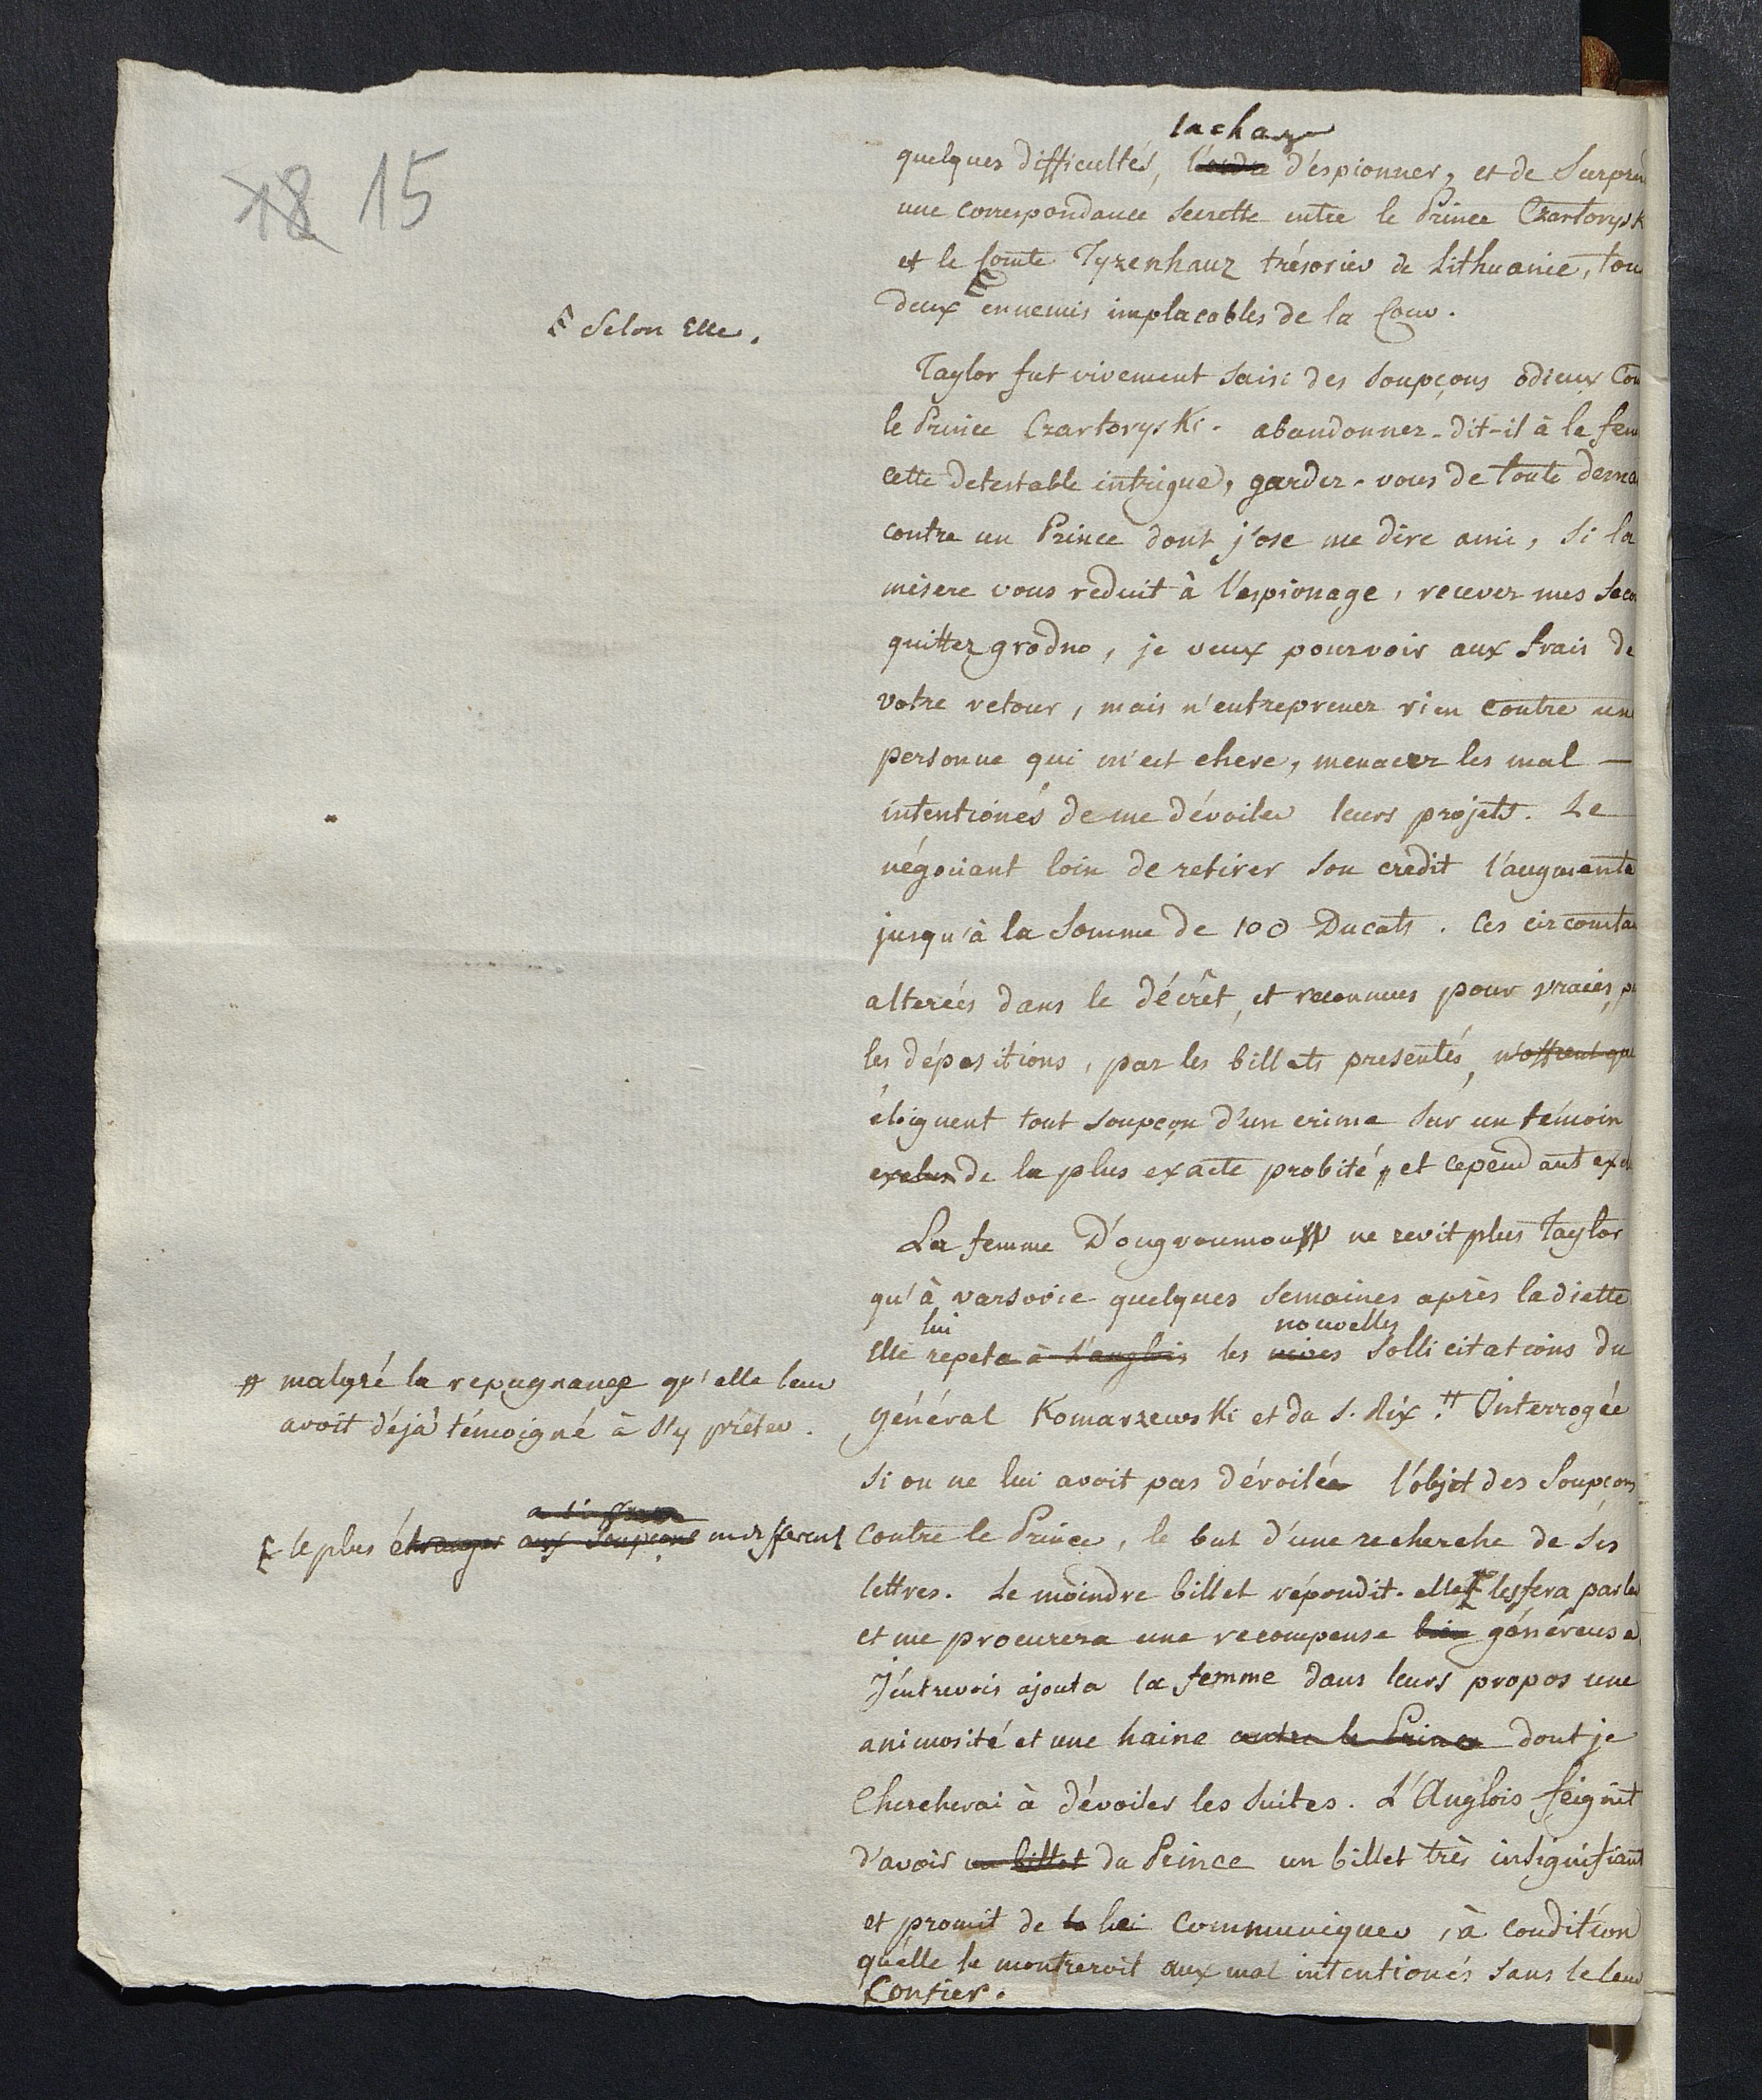 18 15
la charge
quelques difficultés, l'ordre d'espionner, et de Surpren
une correspondance Secrette entre le Prince Czartorysk
et le Comte Tyzenhauz trésorier de Lithuanie, tou
deux ennemis implacables de la Cour.
Selon Elle.
Taylor fut vivement Saisi des Soupçons odieux Con
le Prince Czartoryski. abandonnez-dit-il à la fem
cette detestable intrigue, gardez-vous de toute dema
contre un Prince dont j'ose me dire ami, Si la
misere vous reduit à l'espionage, recevez mes Seco
quittez grodno, je veux pourvoir aux frais de
votre retour, mais n'entreprenez rien contre une
personne qui m'est chere, menacez les mal —
intentionés de me dévoiler leurs projets. Le
négociant loin de retirer Son credit l'augmenta
jusqu'à la Somme de 100 Ducats. Ces circonsta
alterées dans le décrêt, et reconnues pour vraies, pa
les dépositions, par les billets presentés, n'offrent que
éloignent tout soupçon d'un crime Sur un témoin
exclus de la plus exacte probité, et cependant ex
La femme D'ougroumoff ne revit plus Taylor
qu'à varsovie quelques Semaines après la diette
lui nouvelles
Elle repeta à L'anglois les vives Sollicitations du
# malgré la repugnance qu'elle leur
avoit déjà témoigné à S'y prêter.
général Komarzewski et du S. Rix.# Interrogée
Si on ne lui avoit pas dévoilée l'objet des Soupçons
le plus étranger aux Soupçons indifferent
contre le Prince, le but d'une recherche de Ses
lettres. Le moindre billet répondit-elle les fera parler
et me procurera une recompense bien généreuse
J'entrevois ajouta la femme dans leurs propos une
animosité et une haine contre le Prince dont je
Chercherai à dévoiler les Suites. L'Anglois feignit
d'avoir un billet du Prince un billet très insignifiant
et promit de le lui communiquer, à condition
qu'elle le montreroit aux mal intentionés Sans le leur
Confier.